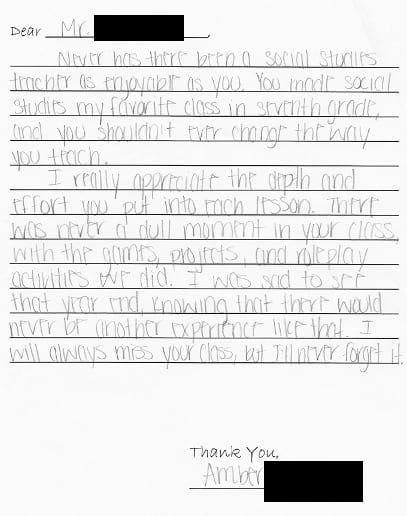 Dear Mr.
Never has there been a social studies
teacher as enjoyable as you. You made social
studies my favorite class in seventh grade,
and you shouldn't ever change the way
you teach.
I really appreciate the depth and
effort you put into each lesson. There
was never a dull moment in your class,
with the games, projects, and roleplay
activities we did. I was sad to see
that year end, knowing that there would
never be another experience like that. I
will always miss your class, but I'll never forget it.
Thank You,
Amber